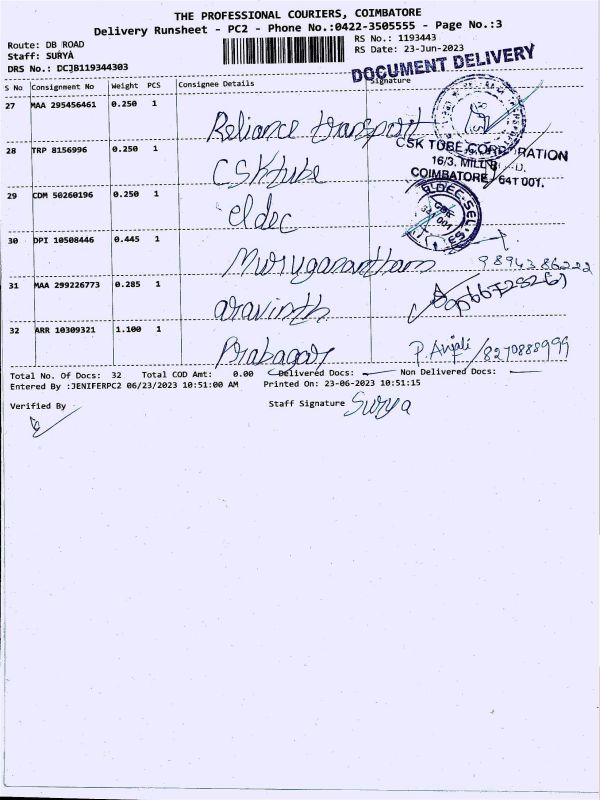 THE PROFESSIONAL COURIERS, COIMBATORE
Delivery Runsheet - PC2 - Phone No.:0422-3505555 - Page No.:3
Route: DB ROAD
RS No.: 1193443
Staff: SURYA
RS Date: 23-Jun-2023
DRS No.: DCJB119344303
DOCUMENT DELIVERY
S No Consignment No Weight PCS Consignee Details Signature
27 MAA 295456461 0.250 1 Reliance transport
28 TRP 8156996 0.250 1 CSK tube
CSK TUBE CORPORATION
16/3. MILL
COIMBATORE 641 001.
29 CDM 50260196 0.250 1 eldec
30 DPI 10508446 0.445 1 Muruganantham
31 MAA 299226773 0.285 1 aravinth
32 ARR 10309321 1.100 1 Prabagar P. Anjali / 8270888999
Total No. Of Docs: 32 Total COD Amt: 0.00 Delivered Docs: Non Delivered Docs:
Entered By :JENIFERPC2 06/23/2023 10:51:00 AM Printed On: 23-06-2023 10:51:15
Verified By Staff Signature Surya